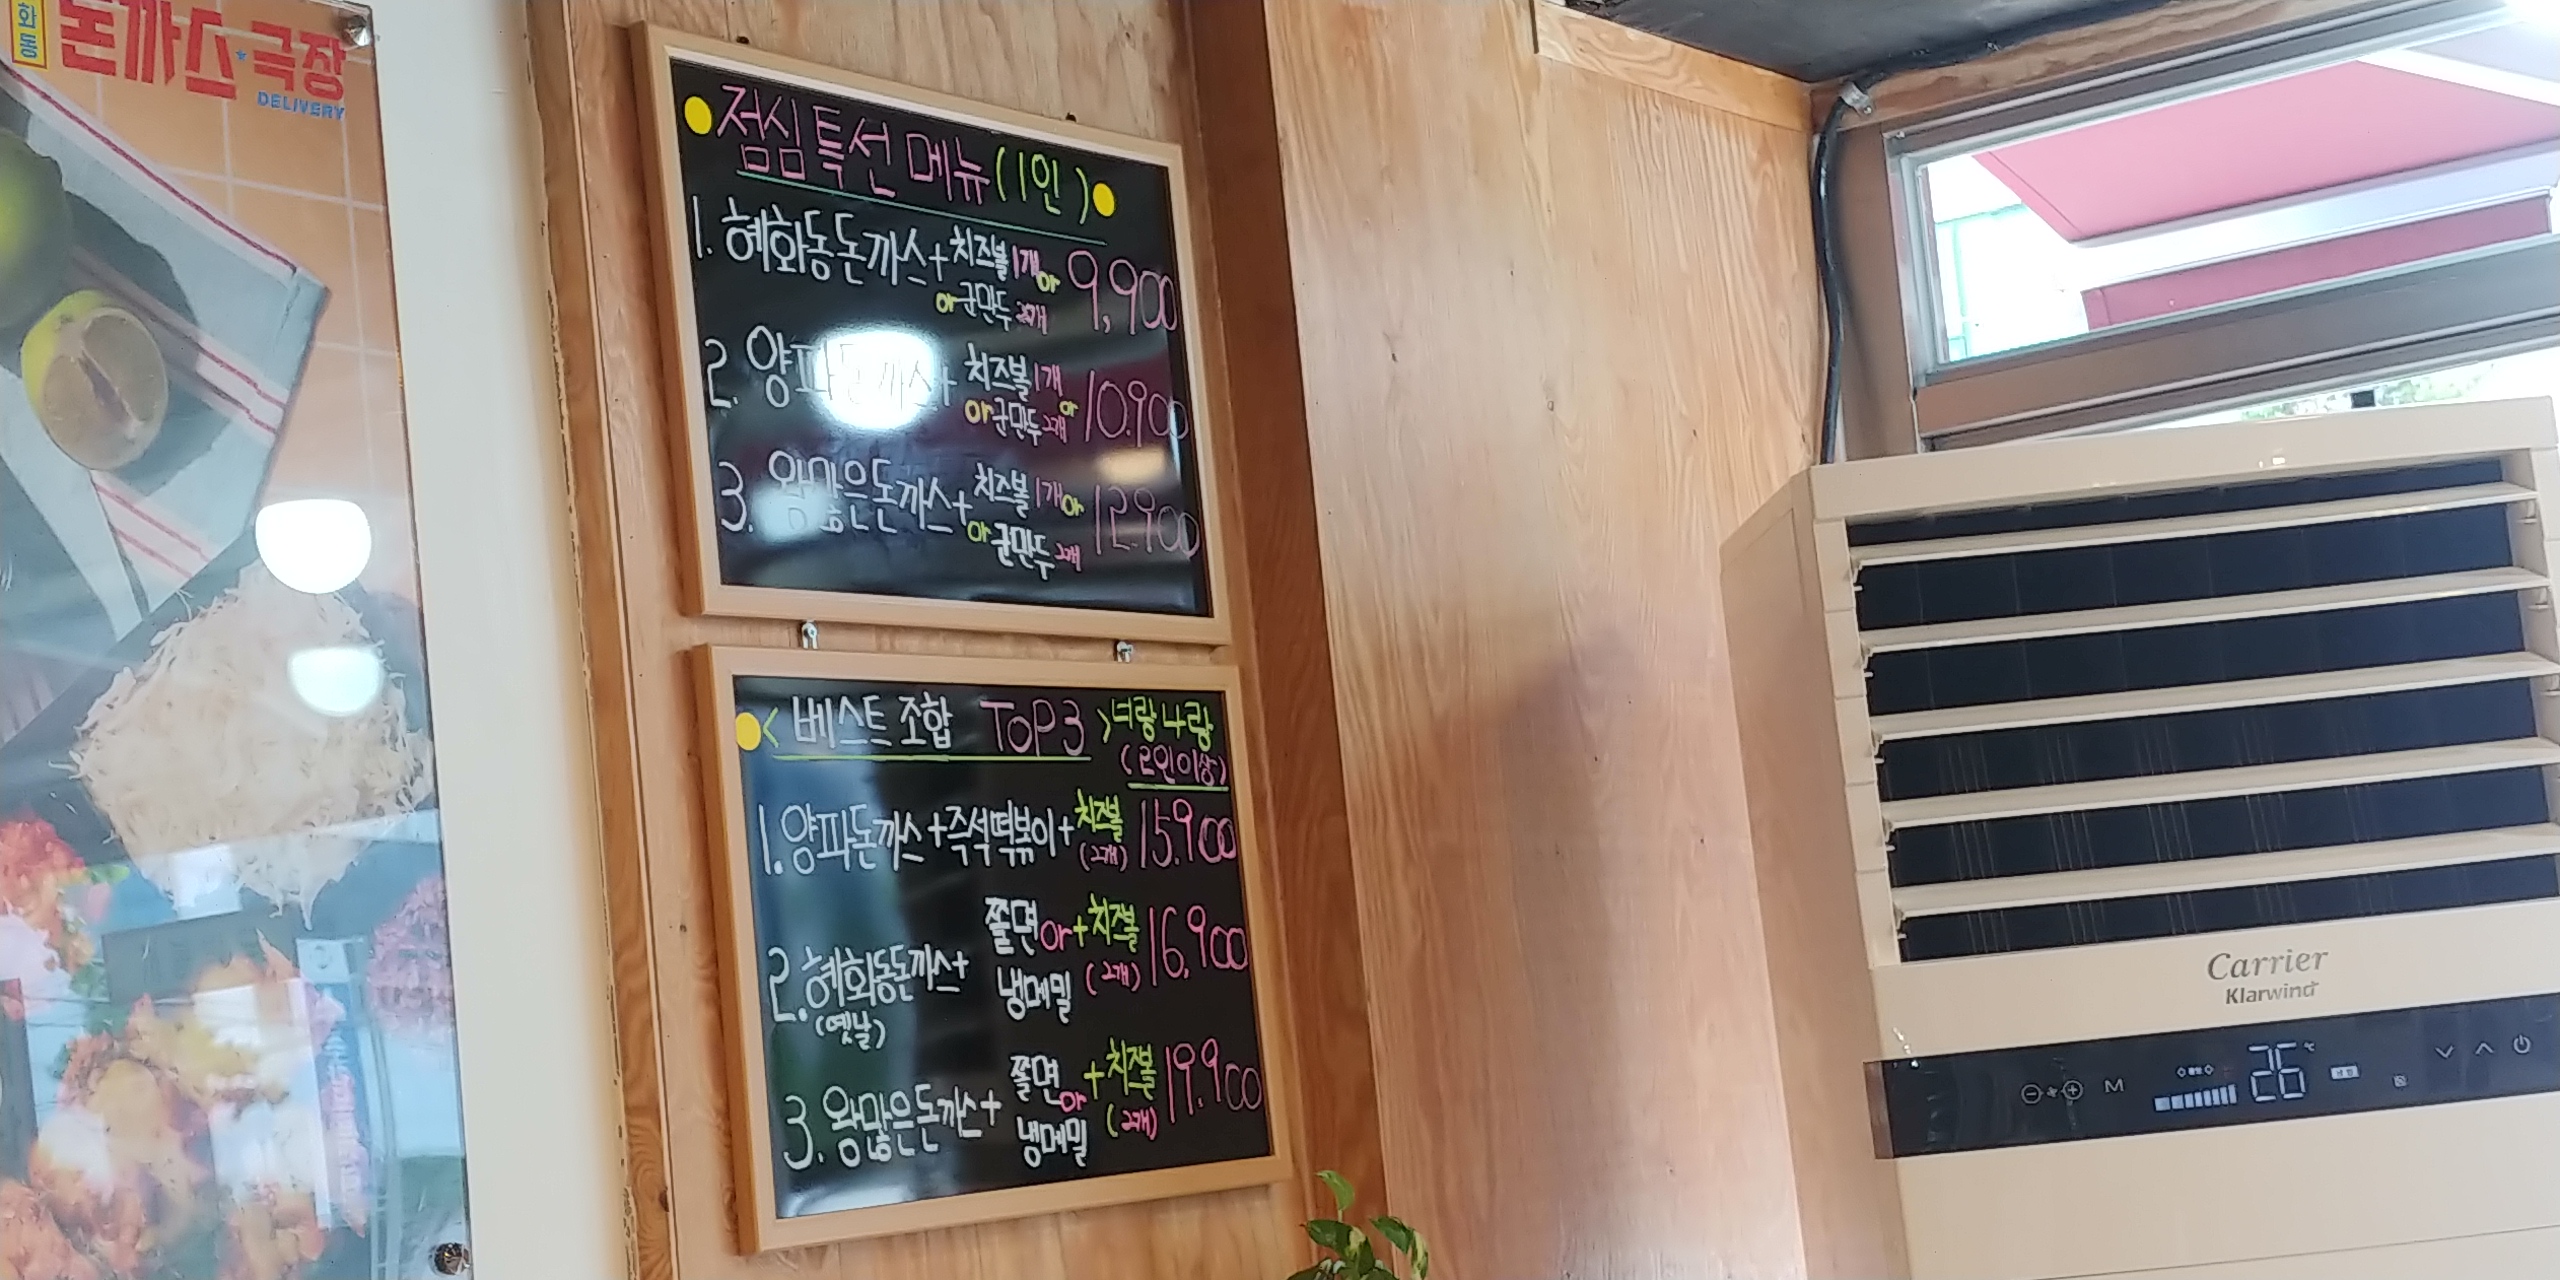 화동
돈까스★극장
DELIVERY
점심특선 메뉴 (1인)
1. 혜화동돈까스+치즈볼1개or 9,900
or군만두2개
2. 양파돈까스+치즈볼1개or 10.900
or군만두2개
3. 왕많은돈까스+치즈볼1개or 12.900
or군만두2개
<베스트 조합 TOP3> 너랑나랑
(2인이상)
1. 양파돈까스+즉석떡볶이+치즈볼 15.900
(2개)
2. 혜화동돈까스+쫄면or+치즈볼 16,900
(옛날) 냉메밀 (2개)
3. 왕많은돈까스+쫄면or+치즈볼 19.900
냉메밀 (2개)
Carrier
Klarwind
M
26
℃